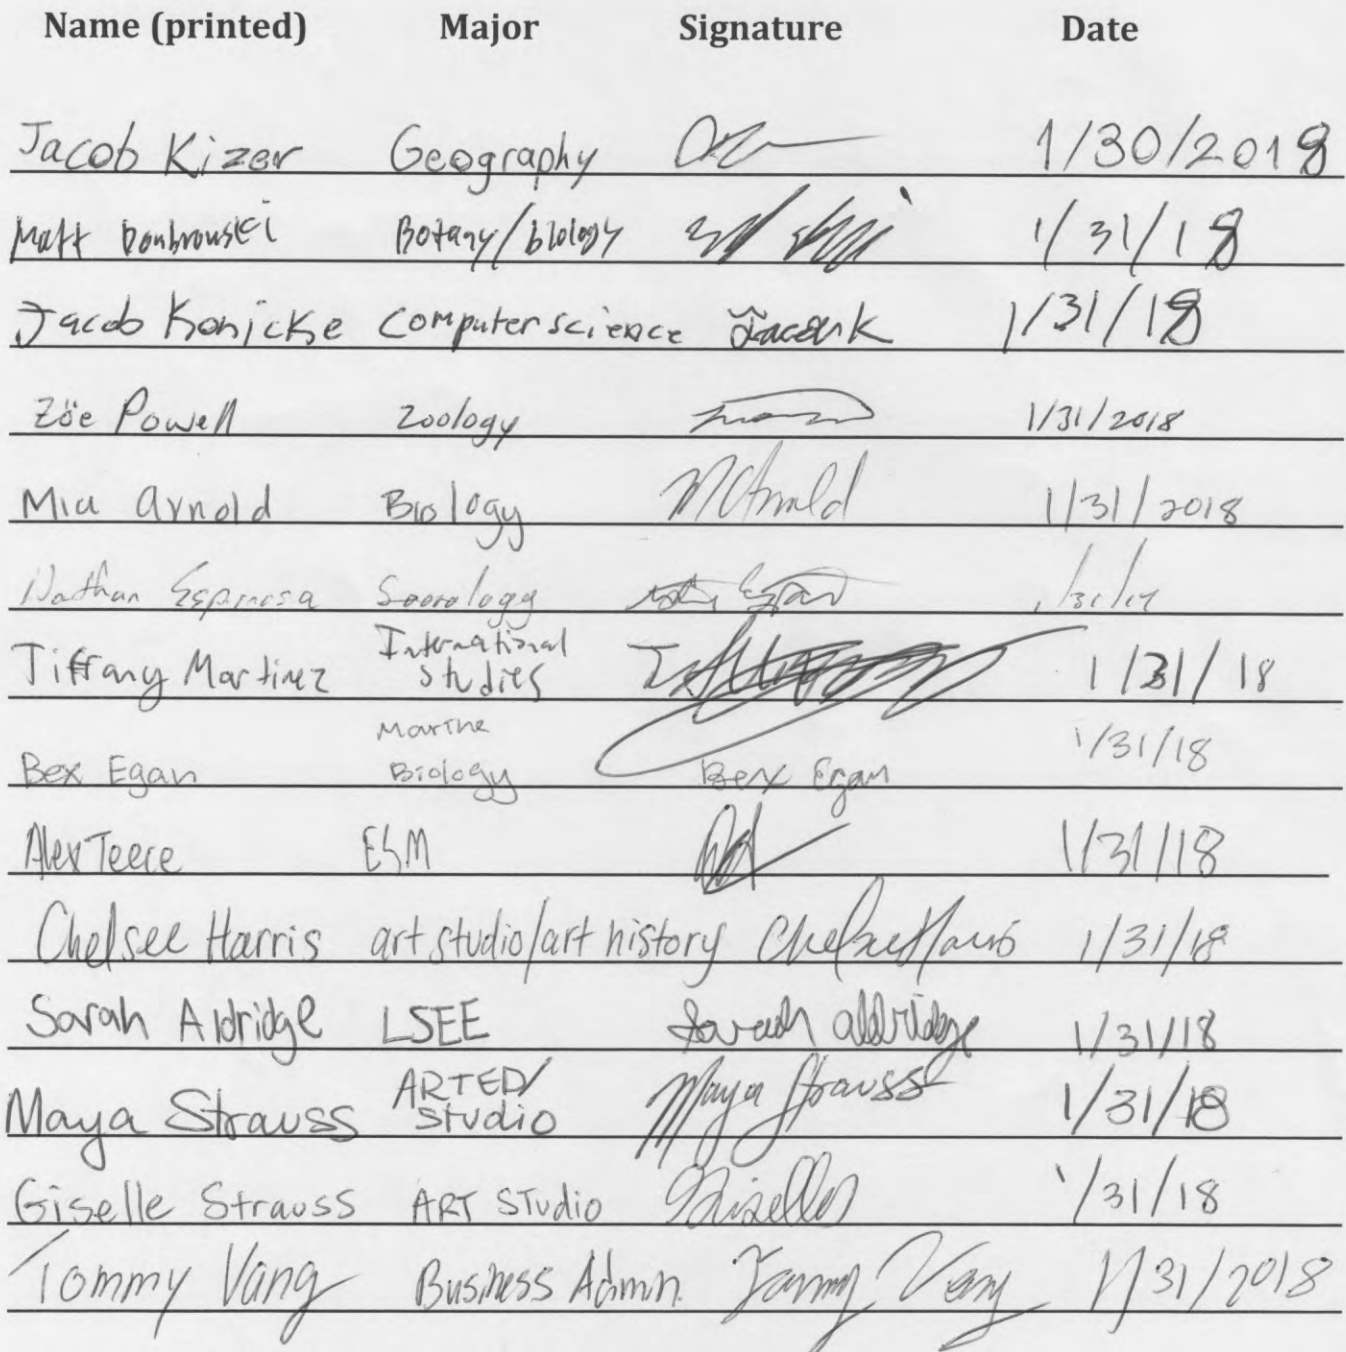 Name (printed) Major Signature Date
Jacob Kizer Geography 1/30/2018
Matt Dombrowski Botany/biology 1/31/18
Jacob Konicke Computer science Jacob K 1/31/18
Zöe Powell Zoology 1/31/2018
Mia Arnold Biology MArnold 1/31/2018
Nathan Espinosa
Tiffany Martinez International studies 1/31/18
Bex Egan Marine Biology Bex Egan 1/31/18
Alex Teece ESM 1/31/18
Chelsee Harris art studio/art history Chelsee Harris 1/31/18
Sarah Aldridge LSEE Sarah aldridge 1/31/18
Maya Strauss ARTED/ Studio Maya Strauss 1/31/18
Giselle Strauss ART STudio Giselle 1/31/18
Tommy Vang Business Admin. Tommy Vang 1/31/2018